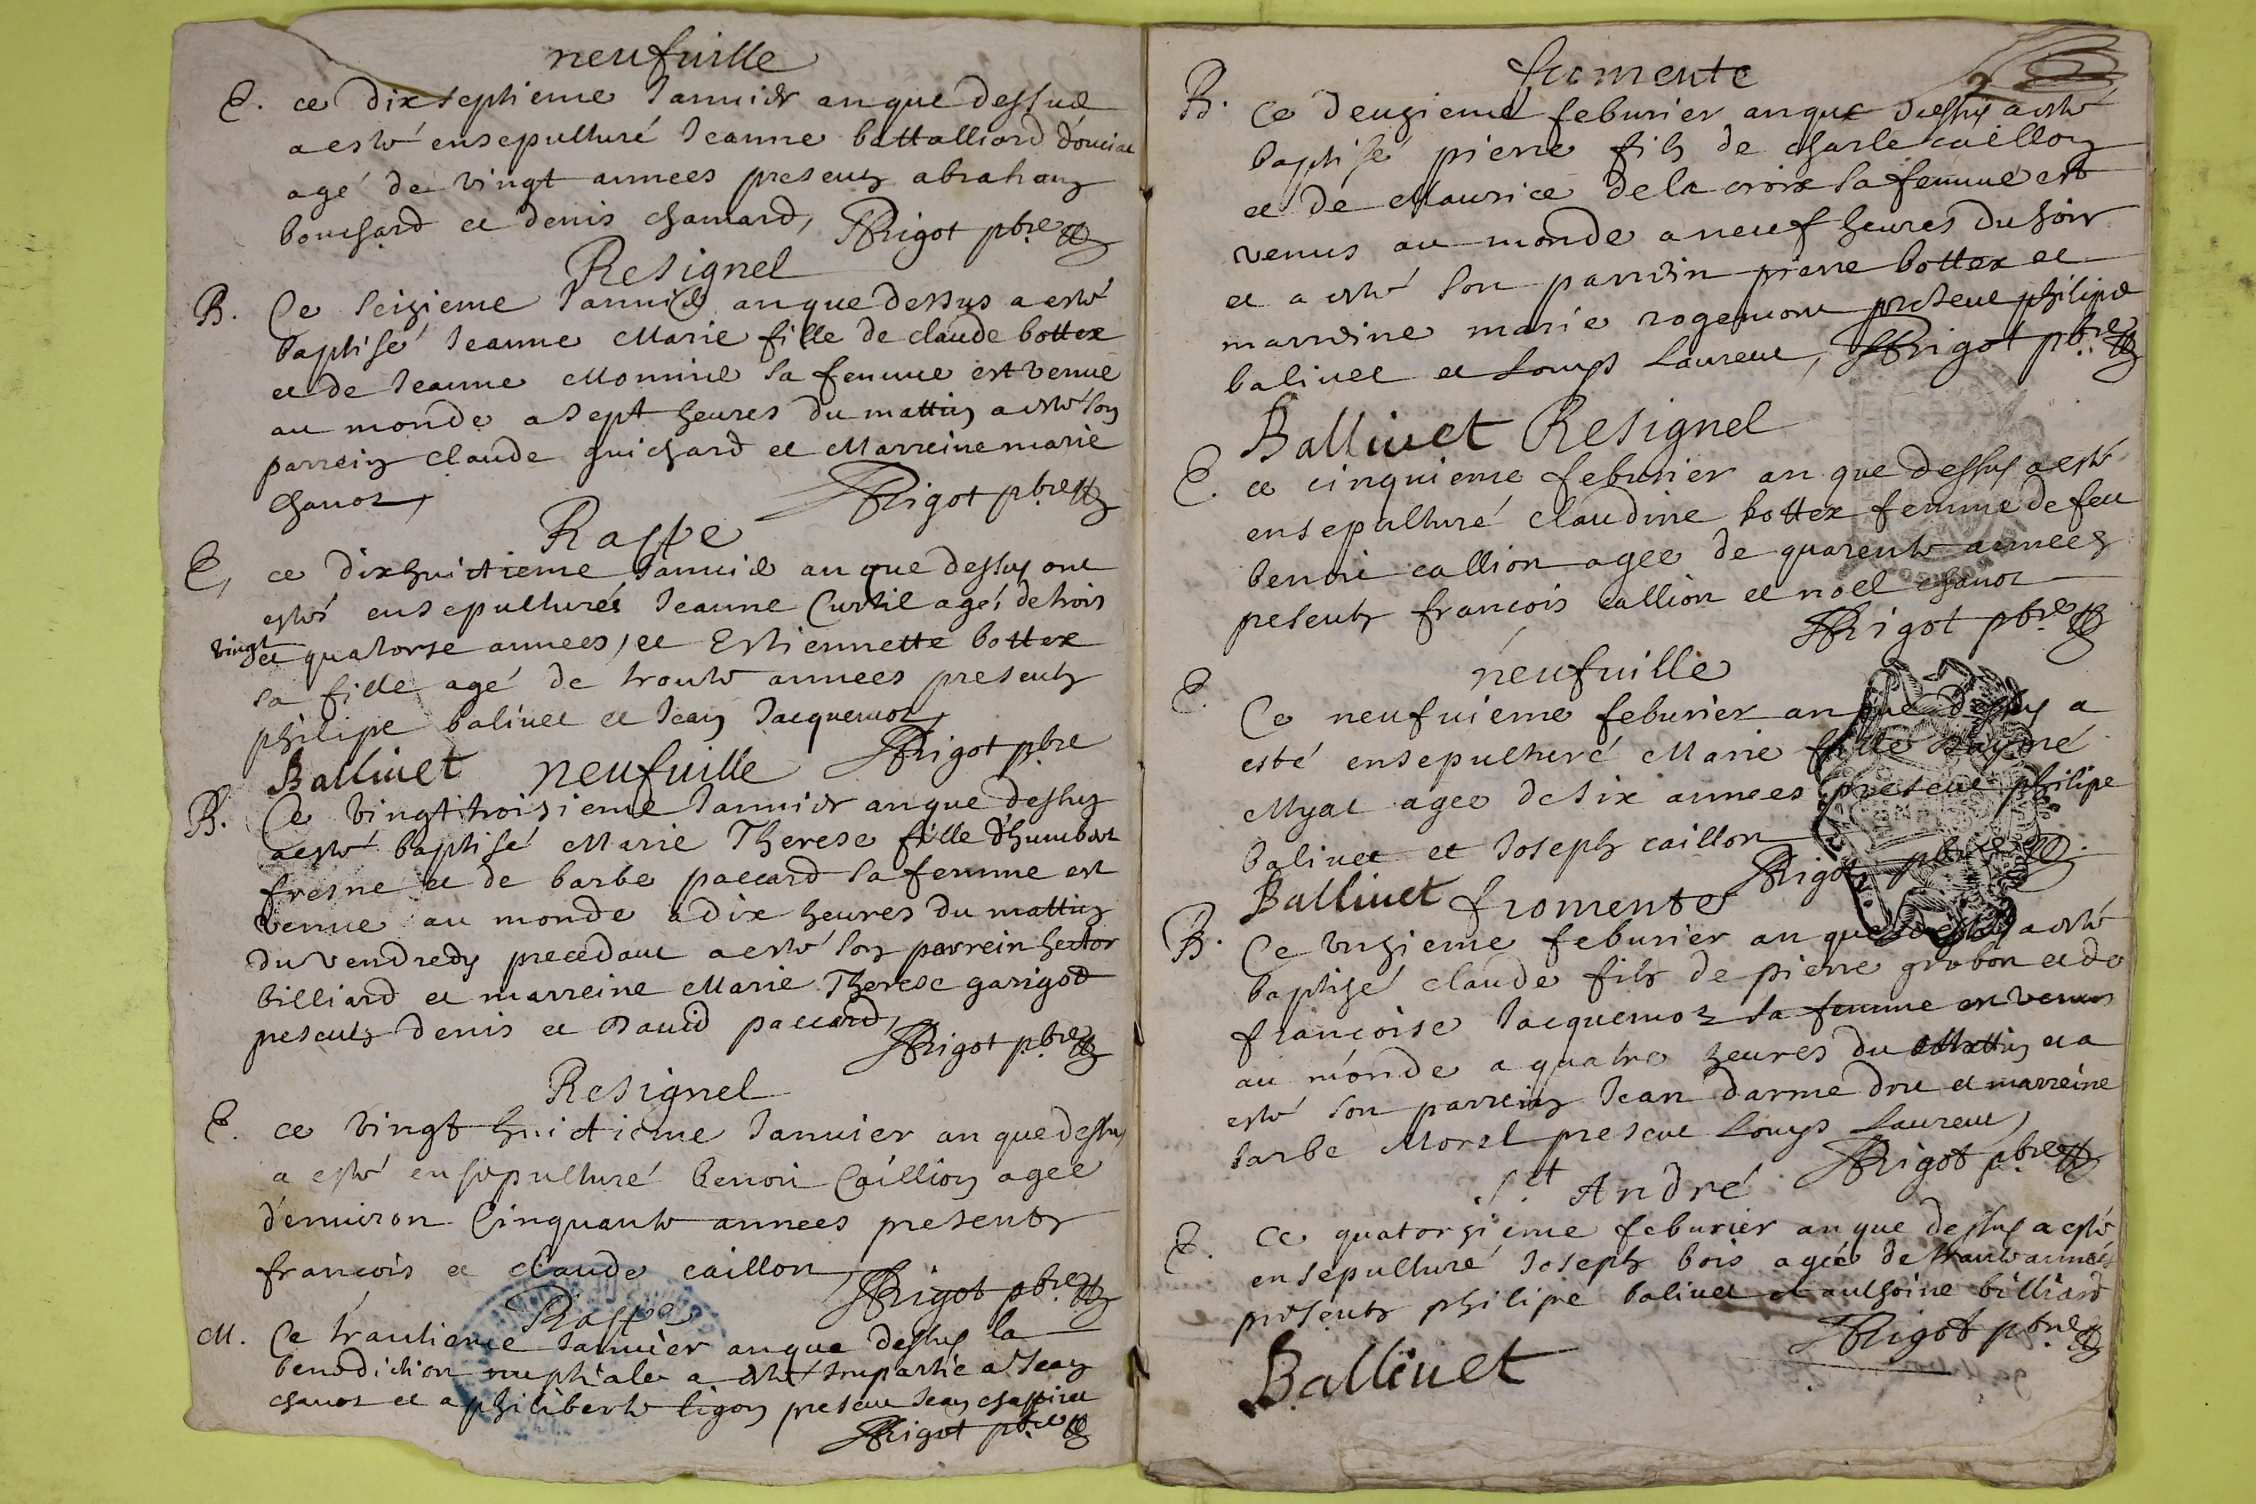 neufuille
E. ce dixseptieme Januier an que dessus
a esté ensepulturé Jeanne battalliard douciat
agé de vingt annees presents abraham
bouchard et denis chanard, Rigot pbre
Resignel
B. Ce seizieme Januier an que dessus a esté
baptisé Jeanne Marie fille de claude bottex
et de Jeanne Monnine sa femme est venue
au monde a sept heures du mattin a esté son
parrein claude guichard et Marreine marie
chanoz, Rigot pbre
Raffe
E, ce dixhuictieme Januier an que dessus ont
estés ensepulturéz Jeanne Curtil agé, de trois
vingt et quatorse annees, et Estiennette bottex
sa fille agé de trente annees presents
philipe baliuet et Jean Jacquemoz,
Rigot pbre
Balliuet neufuille
B. Ce vingttroisieme Januier an que dessus
a esté baptisé Marie Therese fille d'humbert
fresne et de barbe paccard sa femme est
venue au monde a dix heures du mattin
du vendredy precedant a esté son parrein hector
billiard et marreine Marie Therese garigod
presents denis et Dauid paccard,
Rigot pbre
Resignel
E. ce vingt huictieme Januier an que dessus
a esté ensepulturé benoi Caillion agee
d'enuiron Cinquante annees presents
francois et claude caillon,
Rigot pbre
Raffe
M. Ce trantieme Januier an que dessus la
benediction nuptiale a esté impartie a Jean
chanoz et a philiberte ligon present Jean
Rigot pbre
fromente
2
B. Ce deuzieme feburier an que dessus a esté
baptisé pierre fils de charle caillon
et de Maurice de la croix sa femme est
venus au monde a neuf heures du soir
et a esté son parrein pierre bottex et
marreine marie rogemont present philipe
baliuet et Louys Laurent, Rigot pbre
Balliuet Resignel
E. ce cinquieme feburier an que dessus a esté
ensepulturé claudine bottex femme de feu
benoi callion agee de quarente annees
presents francois callion et noel chanoz
Rigot pbre
neufuille
E. Ce neufuieme feburier an que dessus a
esté ensepulturé Marie fille d'aymé
Myat agee de six annees present philipe
baliuet et Joseph caillon
Rigot pbre
Balliuet fromente
B. Ce unzieme feburier an que dessus a esté
baptizé claude fils de pierre grobon et de
francoise Jacquemoz sa femme est venus
au monde a quatre heures du Mattin et a
esté son parrein Jean darme dru et marreine
barbe Morel present Louys Laurent,
Rigot pbre
St André
E. Ce quatorzieme feburier an que dessus a esté
ensepulturé Joseph bois agée de trante annees
presents philipe baliuet et anthoine billiard
Rigot pbre
Balliuet